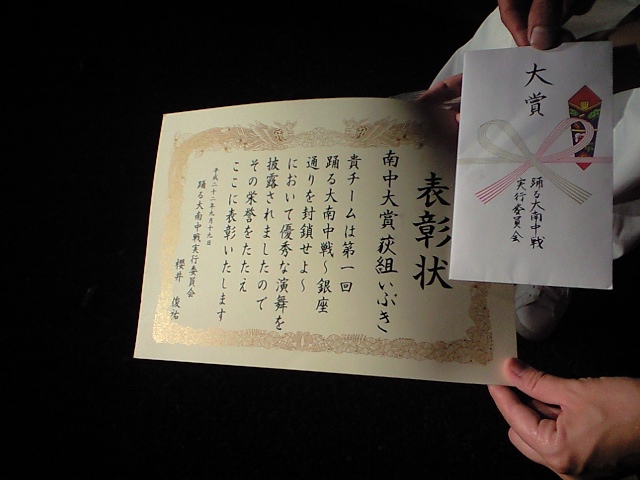 表彰状
南中大賞荻組いぶき
貴チームは第一回
踊る大南中戦～銀座
通りを封鎖せよ～
において優秀な演舞を
披露されましたので
その栄誉をたたえ
ここに表彰いたします
平成二十二年九月十九日
踊る大南中戦実行委員会
櫻井 俊祐
大賞
踊る大南中戦
実行委員会